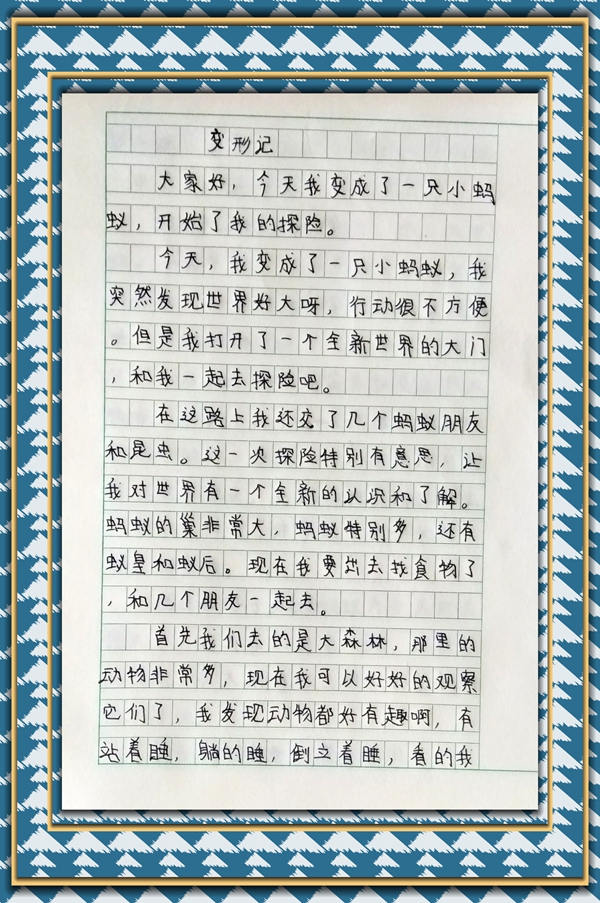 变形记
大家好，今天我变成了一只小蚂
蚁，开始了我的探险。
今天，我变成了一只小蚂蚁，我
突然发现世界好大呀，行动很不方便
。但是我打开了一个全新世界的大门
，和我一起去探险吧。
在这路上我还交了几个蚂蚁朋友
和昆虫。这一次探险特别有意思，让
我对世界有一个全新的认识和了解。
蚂蚁的巢非常大，蚂蚁特别多，还有
蚁皇和蚁后。现在我要出去找食物了
，和几个朋友一起去。
首先我们去的是大森林，那里的
动物非常多，现在我可以好好的观察
它们了，我发现动物都好有趣啊，有
站着睡，躺的睡，倒立着睡，看的我